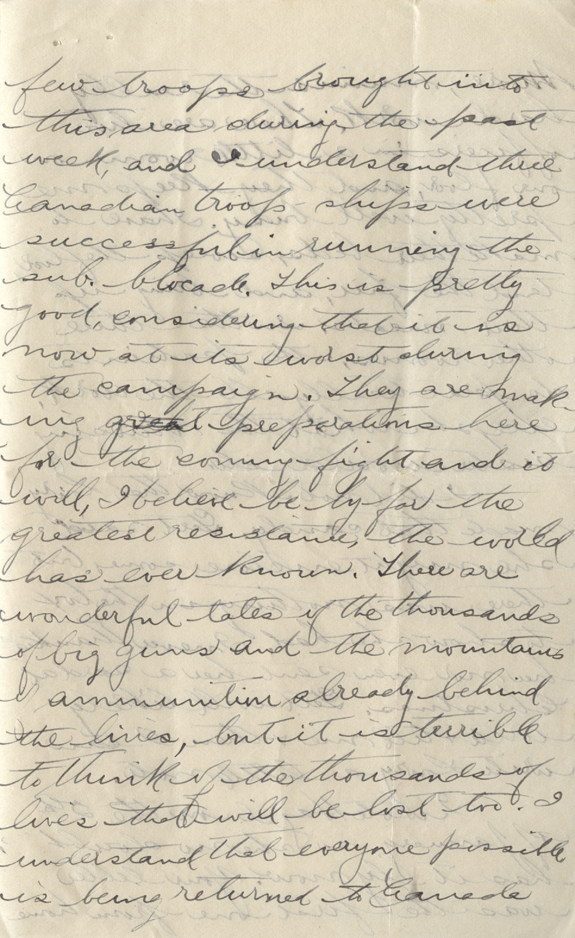 few troops brought into
this area during the past
week, and I understand three
Canadian troop ships were
successful in running the
sub. blocade. This is pretty
good, considering that it is
now at its worst during
the campaign. They are mak-
ing great preparations here
for the coming fight and it
will, I believe be by far the
greatest resistance, the world
has ever known. There are
wonderful tales of the thousands
of big guns and the mountains
of ammunition already behind
the lines, but it is terrible
to think of the thousands of
lives that will be lost too. I
understand that everyone possible
is being returned to Canada